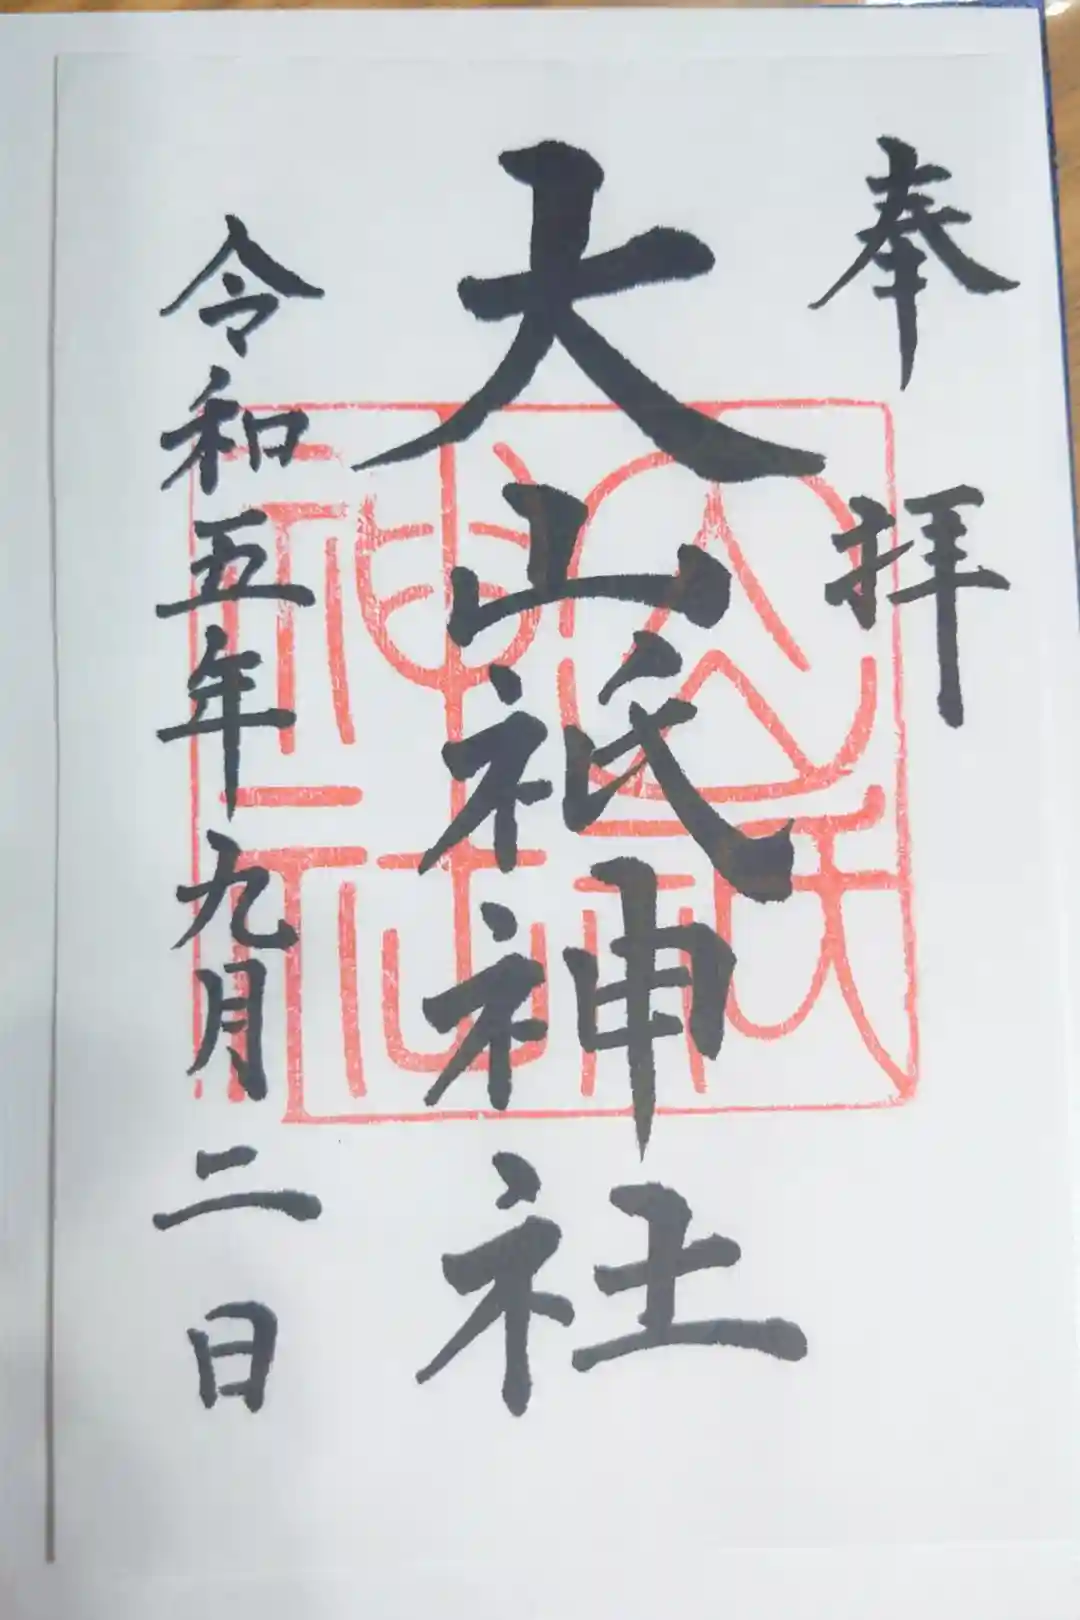 奉拝
大山祇神社
令和五年九月二日
大山祇神社